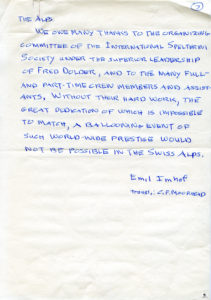 7
THE ALPS.
WE OWE MANY THANKS TO THE ORGANIZING
COMMITTEE OF THE INTERNATIONAL SPELTERINI
SOCIETY UNDER THE SUPERIOR LEADERSHIP
OF FRED DOLDER, AND TO THE MANY FULL-
AND PART-TIME CREW MEMBERS AND ASSIST-
ANTS. WITHOUT THEIR HARD WORK, THE
GREAT DEDICATION OF WHICH IS IMPOSSIBLE
TO MATCH, A BALLOONING EVENT OF
SUCH WORLD-WIDE PRESTIGE WOULD
NOT BE POSSIBLE IN THE SWISS ALPS.
Emil Imhof
TRANSL. C.F. MOORHEAD